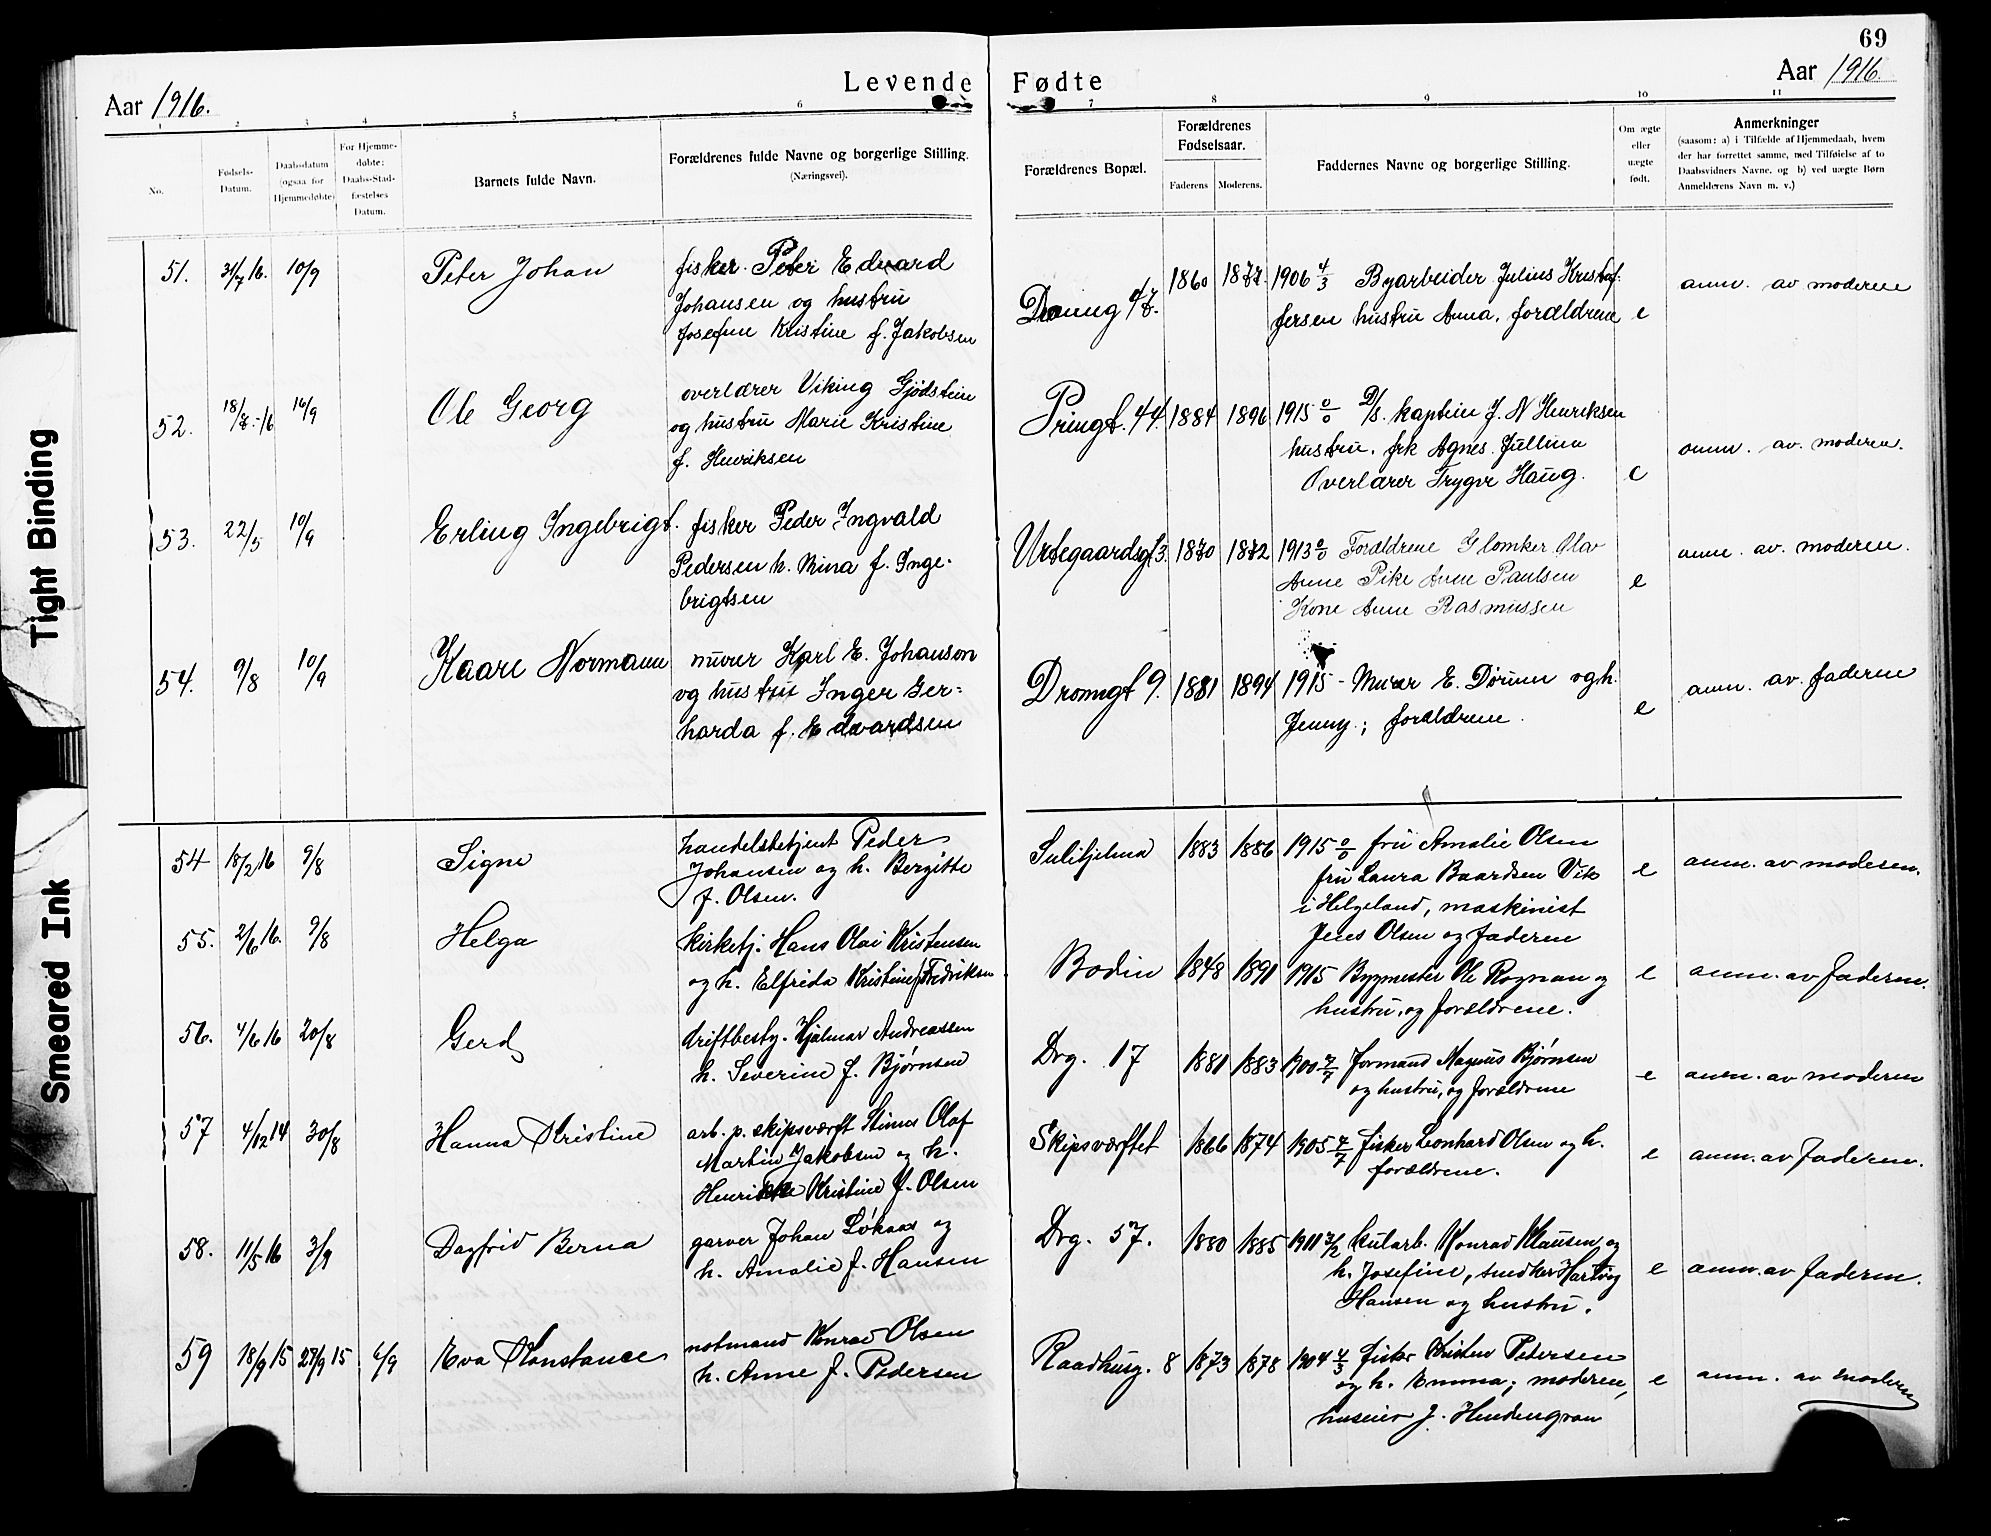 69
Levende Fødte
Aar 1916.
Aar 1916.
1 2 3 4 5 6 7 8 9 10 11
No.
Fødsels-
Datum.
Daabsdatum
(ogsaa for
Hjemmedøbte)
For Hjemme-
døbte:
Daabs-Stad-
fæstelses
Datum.
Barnets fulde Navn.
Forældrenes fulde Navne og borgerlige Stilling.
(Næringsvei).
Forældrenes Bopæl.
Forældrenes
Fødselsaar.
Faderens
Moderens.
Faddernes Navne og borgerlige Stilling.
Om ægte
eller
uægte
født.
Anmerkninger
(saasom: a) i Tilfælde af Hjemmedaab, hvem
der har forrettet samme, med Tilføielse af to
Daabsvidners Navne. og b) ved uægte Børn
Anmelderens Navn m. v.)
51. 31/7 16. 10/9 Peter Johan fisker Peter Edvard
Johansen og hustru
Josefine Kristine f. Jakobsen
Dronng 47. 1860 1877. 1906 4/3 Byarbeider Julius Kristof-
fersen hustru Anna, forældrene e
anm. av moderen
52. 18/7-16 16/9 Ole Georg overlærer Viking Gjödstein
og hustru Marie Kristine
f. Henriksen
Pringt. 44 1884 1896 1915 0/0 D/S. kaptein J. N Henriksen
hustru, frk Agnes Jullum
Overlærer Trygve Haug. e
anm. av. moderen.
53. 22/5 10/9 Erling Ingebrigt. fisker Peder Ingvald
Pedersen h. Mina f. Inge-
brigtsen
Urtegaardsgt 3. 1870 1872 1913 0/0 Forældrene Glomker Olav
Anne Pike Anne Paulsen
Kone Anne Rasmussen e
anm. av. moderen.
54. 9/8 10/9 Kaare Normann murer Karl E. Johanson
og hustru Inger Ger-
harda f. Edvardsen
Dronngt 9. 1881 1894 1915 - Murer E. Dörum og h.
Jenny; forældrene. e
anm. av. faderen
54 18/2 16 9/8 Signe handelsbetjent Peder
Johansen og h. Bergitte
f. Olsen.
Sulitjelma 1883 1886 1915 0/0 fru Amalie Olsen
fru Laura Baardsen Vik
i Helgeland, maskinist
Jens Olsen og faderen e
anm. av moderen.
55. 2/6 16. 9/8 Helga kirketj. Hans Olai Kristensen
og h. Elfrida Kristine f Fredriksen
Bodin 1848 1891 1915 Bygmester Ole Rognan og
hustru, og forældrene. e
anm. av faderen.
56. 4/6 16 20/8 Gerd driftbesty. Hjalmar Andreassen
h. Severine f. Bjørnsen
Drg. 17 1881 1883 1900 7/7 formand Magnus Bjørnsen
og hustru, og forældrene e
anm. av moderen
57 4/12 14 30/8 Hanna Kristine arb. p. skipsværft Olaf
Martin Jakobsen og h.
Henrikke Kristine f. Olsen
Skipsværftet 1866 1874 1905 7/7 fisker Leonhard Olsen og h.
forældrene. e
anm. av faderen.
58. 11/5 16 3/9 Dagfrid Berna garver Johan Løkaas og
h. Amalie f. Hansen
Drg. 57. 1880 1885 1911 3/2 kularb. Konrad Klausen og
h. Josefine, snedker Hartvig
Hansen og hustru. e
anm. av faderen.
59 18/9 15 27/9 15 6/9 Eva Konstance notmand Konrad Olsen
h. Anne f. Pedersen
Raadhusg. 8 1873 1878 1904 4/3 fisker Kristen Petersen
og h. Emma; moderen,
huseier J. Hendengran e
anm. av moderen
Tight Binding
Smeared Ink